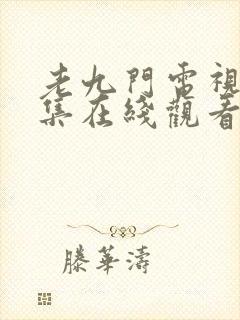 老九門電視
集在綫觀看
滕華濤